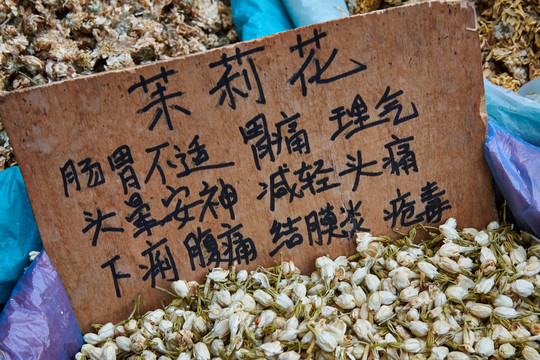 茉莉花
肠胃不适 胃痛 理气
头晕安神 减轻头痛
下痢腹痛 结膜炎 疮毒